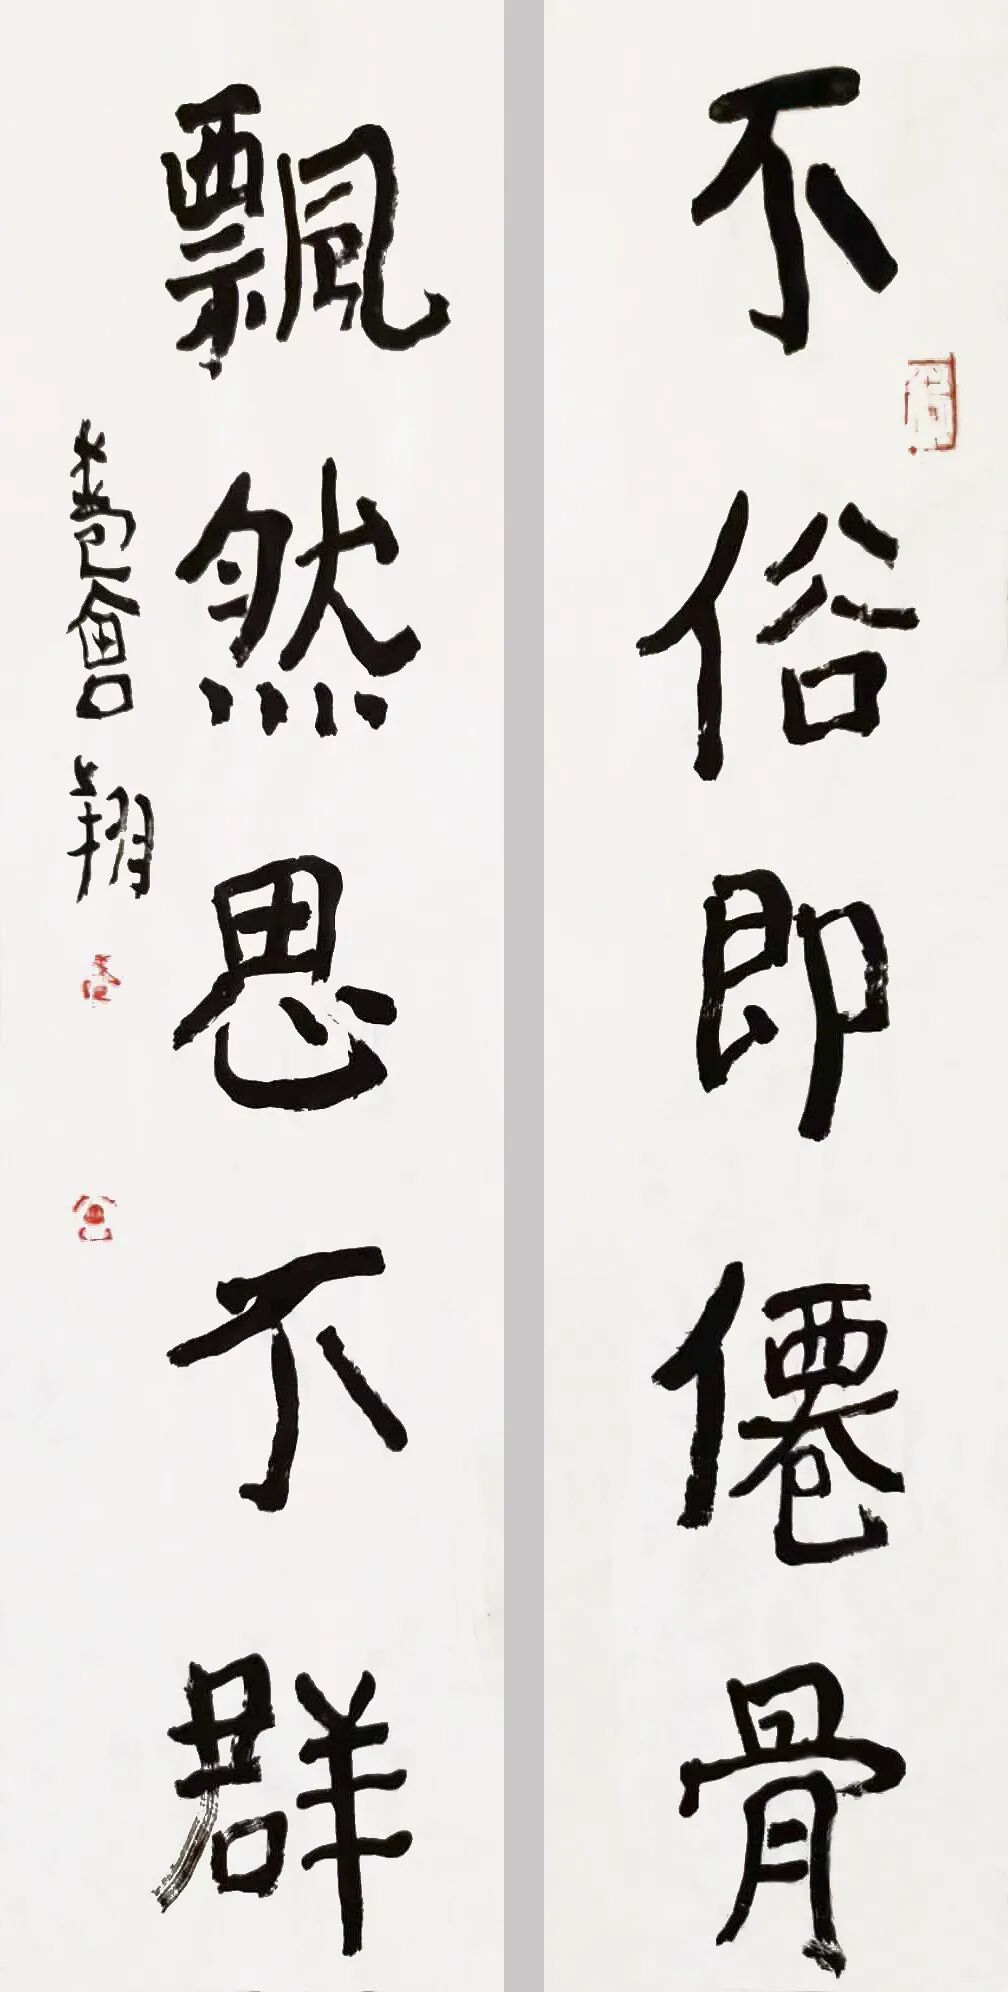 不俗即僊骨
飄然思不群